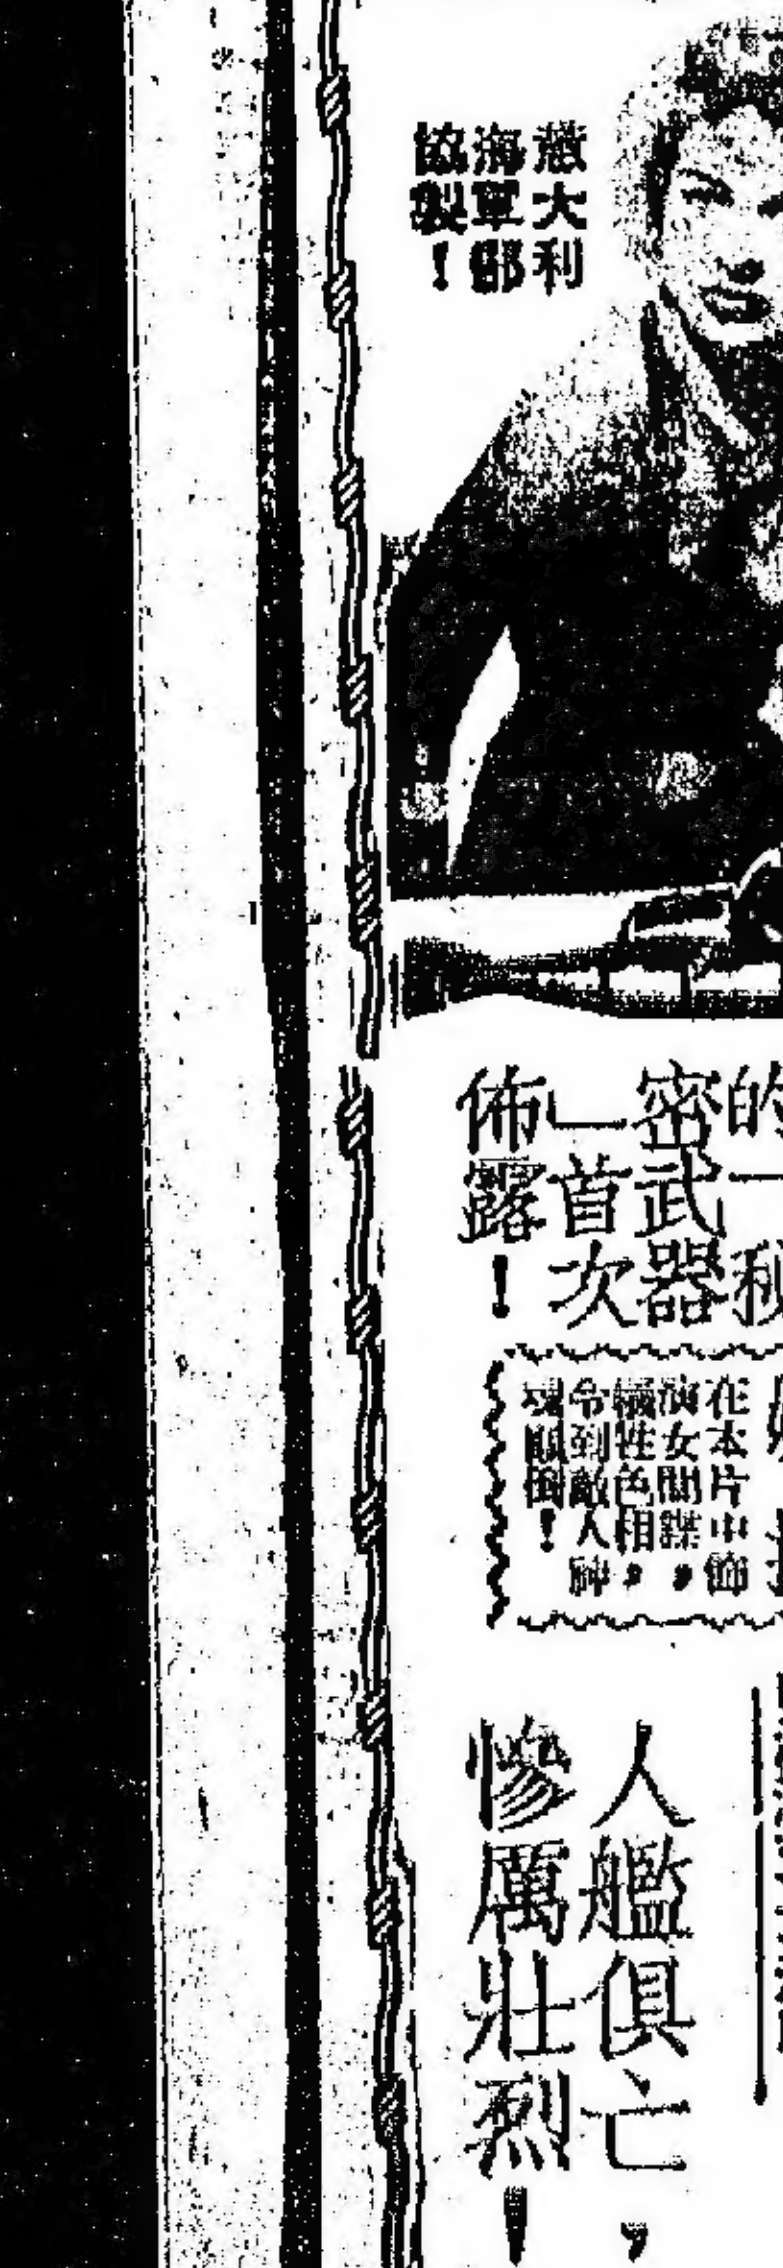 意大利
海軍部
協製！
的一秘
密武器
﹂首次
佈露！
在本片中飾
演女間諜，
犧牲色相，
令到敵人神
魂顛倒！
人艦俱亡，
慘厲壯烈！